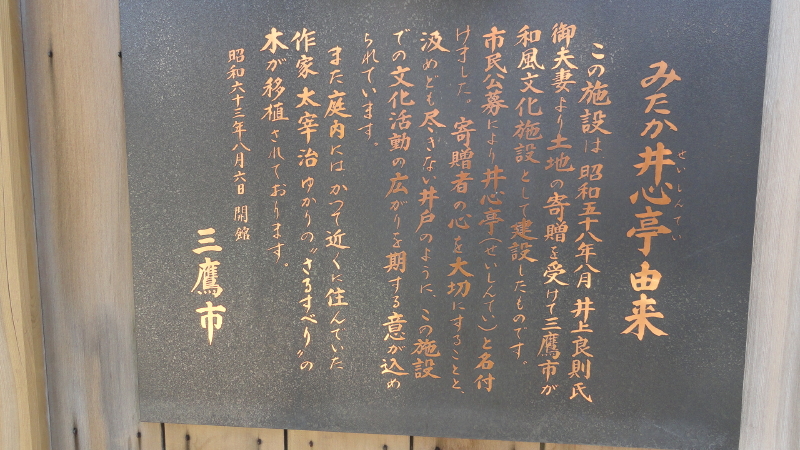 みたか井心亭由来
せいしんてい
この施設は 昭和五十八年八月 井上良則氏
御夫妻より土地の寄贈を受けて三鷹市が
和風文化施設として建設したものです。
市民公募により井心亭(せいしんてい)と名付
けました。寄贈者の心を大切にすることと、
汲めども尽きない井戸のように、この施設
での文化活動の広がりを期する意が込め
られています。
また庭内にはかつて近くに住んでいた
作家 太宰治ゆかりの"さるすべり"の
木が移植されております。
昭和六十三年八月六日 開館
三鷹市